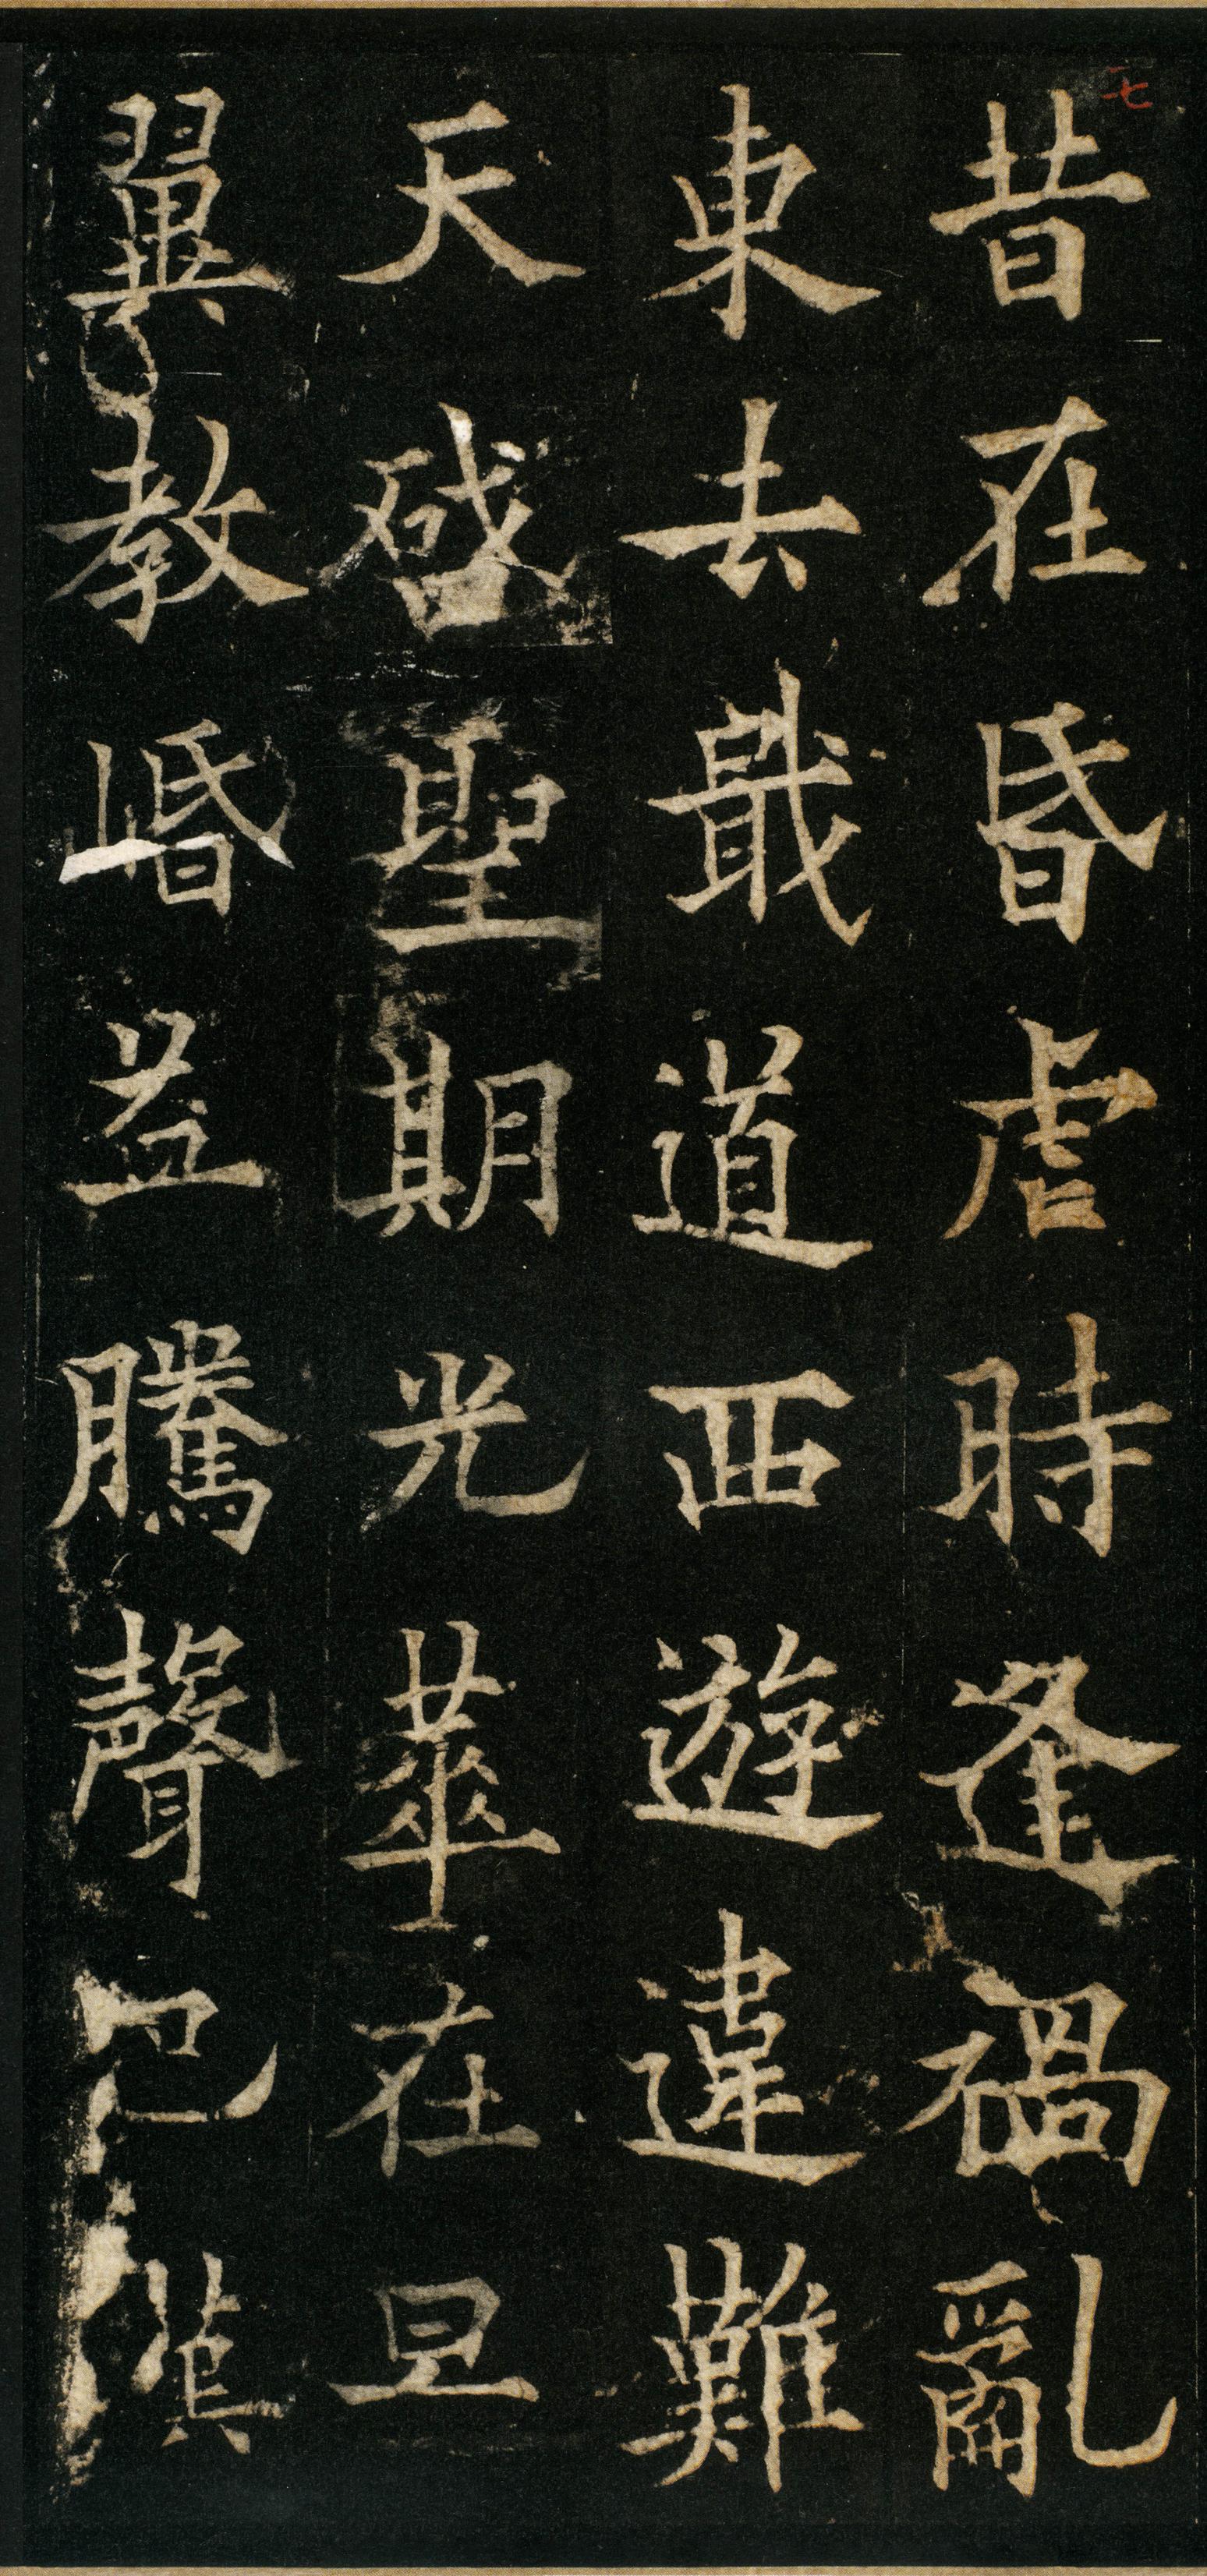 七
昔在昏虐時逢禍亂
東去戢道西遊違難
天啓聖期光華在旦
翼教崏益騰聲巴漢